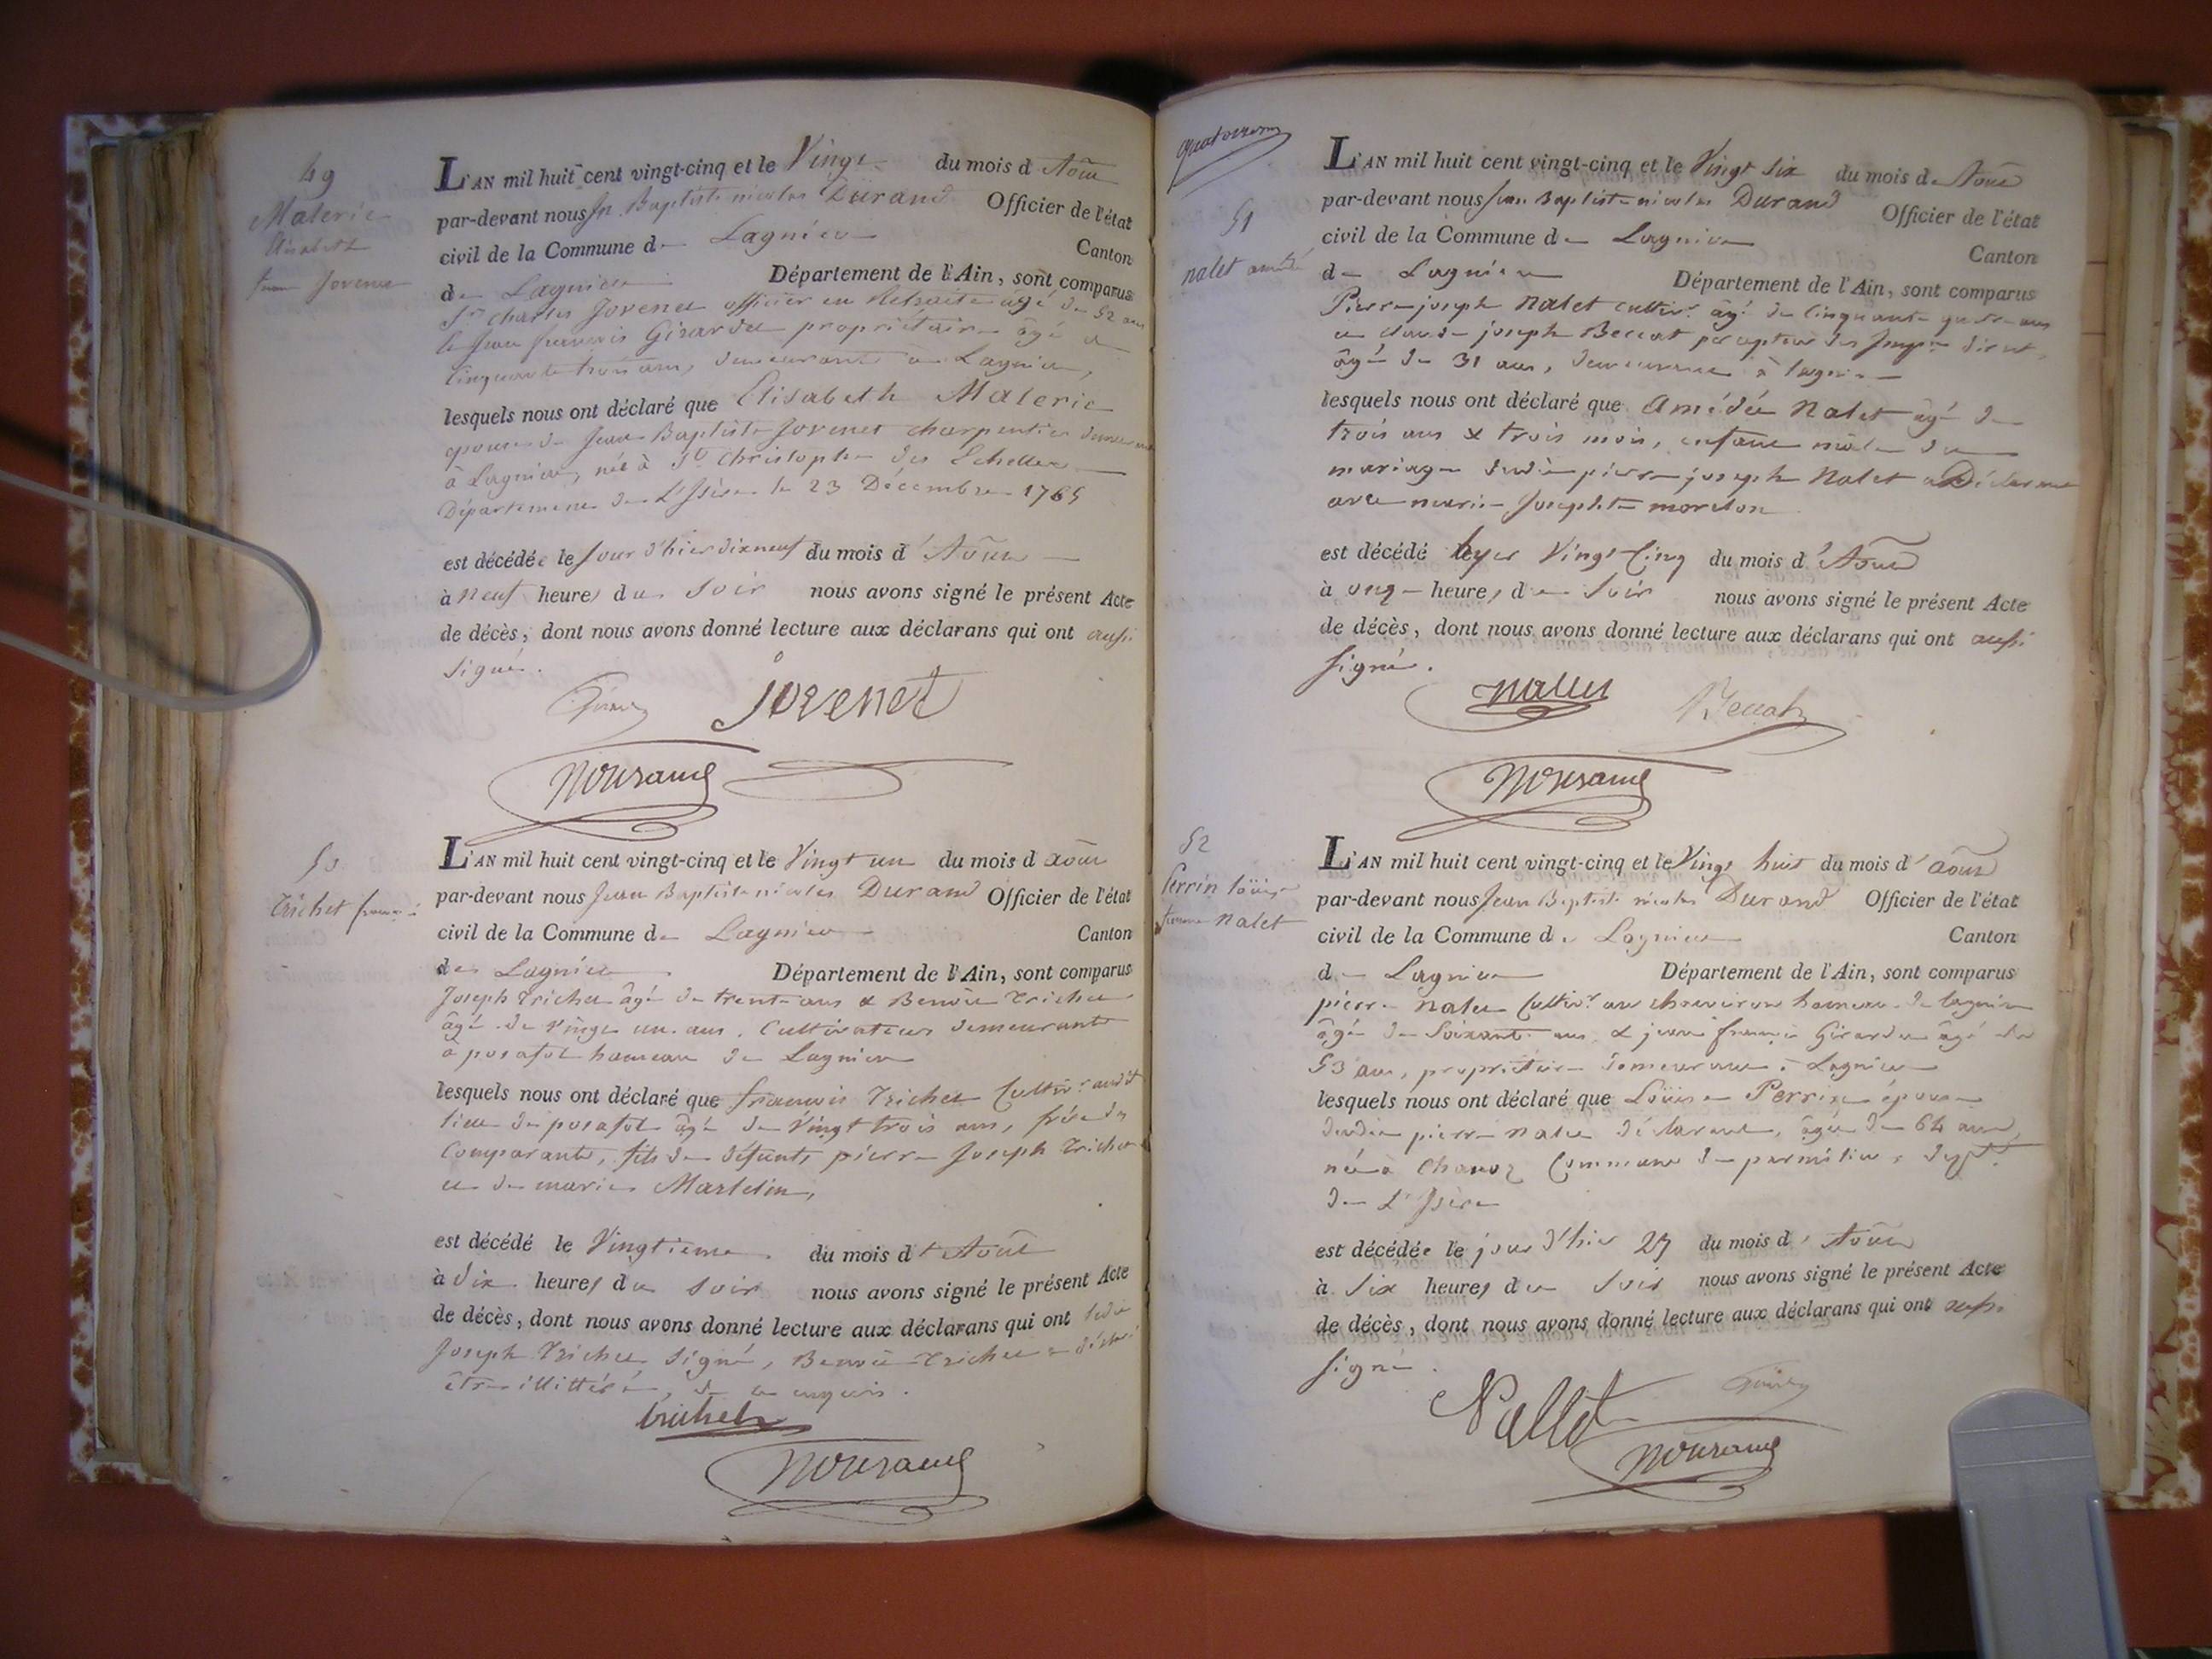 49
Materic
Elisabeth
femme Jovenet
L'AN mil huit cent vingt-cinq et le Vingt du mois d Août
par-devant nous Jn Baptiste nicolas Durand Officier de l'état
civil de la Commune de Lagnieu Canton
de Lagnieu Département de l'Ain, sont comparus
Sr Charles Jovenet officier en Retraite agé de 52 ans
& Jean francois Girardet propriétaire âgé de
Cinquante trois ans, demeurants à Lagnieu,
lesquels nous ont déclaré que Elisabeth Materic
epouse de Jean Baptiste Jovenet charpentier
à Lagnieu, née à St Christophe des Echelles
Département de L'Isère le 23 Décembre 1765
est décédée le jour d'hier dixneuf du mois d'Aout
à neuf heures du soir nous avons signé le présent Acte
de décès, dont nous avons donné lecture aux déclarans qui ont aussi
signé.
Jovenet
NDurand
50
Trichet francois
L'AN mil huit cent vingt-cinq et le Vingt un du mois d août
par-devant nous Jean Baptiste nicolas Durand Officier de l'état
civil de la Commune de Lagnieu Canton
de Lagnieu Département de l'Ain, sont comparus
Joseph Trichet âgé de trente ans & Benoit Trichet
âgé de Vingt un ans, Cultivateurs demeurants
à posafol hameau de Lagnieu
lesquels nous ont déclaré que francois Trichet Cultivr audit
lieu de posafol âgé de Vingt trois ans, frère des
Comparants, fils de défunts pierre Joseph Trichet
et de marie Martelin,
est décédé le Vingtieme du mois d'Août
à dix heures du soir nous avons signé le présent Acte
de décès, dont nous avons donné lecture aux déclarans qui ont ledit
Joseph Trichet signé, Benoit Trichet a déclaré
être illittéré, de ce enquis.
trichet
NDurand
quatorzieme
51
nalet amédé
L'AN mil huit cent vingt-cinq et le Vingt six du mois d'Aout
par-devant nous Jean Baptiste nicolas Durand Officier de l'état
civil de la Commune de Lagnieu Canton
de Lagnieu Département de l'Ain, sont comparus
Pierre joseph Nalet cultivr âgé de Cinquante quatre ans
et claude joseph Beccat percepteur des Impons directes
âgé de 31 ans, demeurants à lagnieu
lesquels nous ont déclaré que Amédée Nalet âgé de
trois ans & trois mois, enfant male du
mariage dudit pierre joseph Nalet Déclarant
avec marie Josephte morelon
est décédé hyer Vingt Cinq du mois d'Aout
à onze heures du soir nous avons signé le présent Acte
de décès, dont nous avons donné lecture aux déclarans qui ont aussi
signé.
Nallet Beccat
NDurand
52
Perrin Loüise
femme Nalet
L'AN mil huit cent vingt-cinq et le Vingt huit du mois d'aoùt
par-devant nous Jean Baptiste nicolas Durand Officier de l'état
civil de la Commune de Lagnieu Canton
de Lagnieu Département de l'Ain, sont comparus
pierre Nalet Cultivr au hameau de lagnieu
âgé de Soixante ans & jean françois Girardet âgé de
53 ans, propriétaire demeurant à Lagnieu
lesquels nous ont déclaré que Loüise Perrin épouse
dudit pierre nalet déclarant, âgée de 64 ans
née à Chanoz Commune de parmilieu, dept
de L'Isère
est décédée le jour d'hier 27 du mois d'Aout
à six heures du soir nous avons signé le présent Acte
de décès, dont nous avons donné lecture aux déclarans qui ont aussi
signé.
Nallet
NDurand